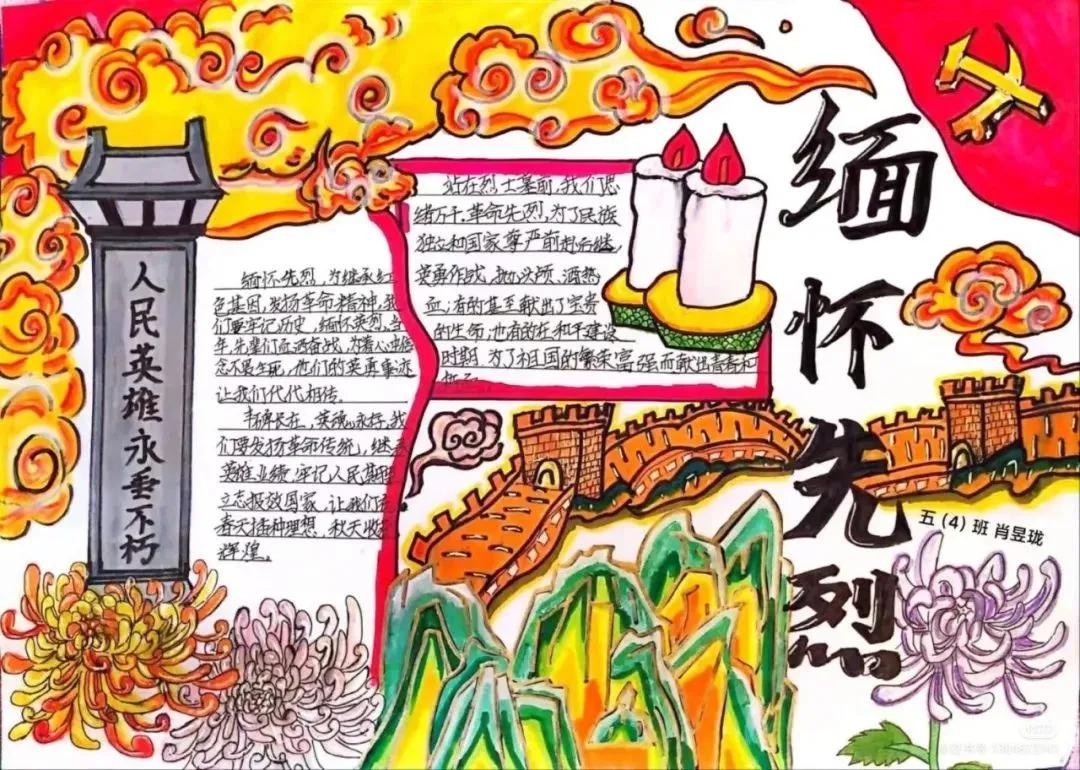 缅怀先烈
五（4）班 肖昱珑
人民英雄永垂不朽
缅怀先烈，为继承红
色基因，发扬革命精神，我
们要牢记历史，缅怀英烈，当
年，先辈们浴血奋战，为着心中信
念不畏生死，他们的英勇事迹
让我们代代相传。
丰碑长在，英魂永存，我
们要发扬革命传统，继承
英雄业绩，牢记人民期盼
立志报效国家，让我们在
春天播种理想，秋天收获
辉煌。
站在烈士墓前，我们思
绪万千，革命先烈，为了民族
独立和国家尊严前赴后继，
英勇作战，抛头颅，洒热
血，有的甚至献出了宝贵
的生命，也有的在和平建设
时期，为了祖国的繁荣富强而献出青春和